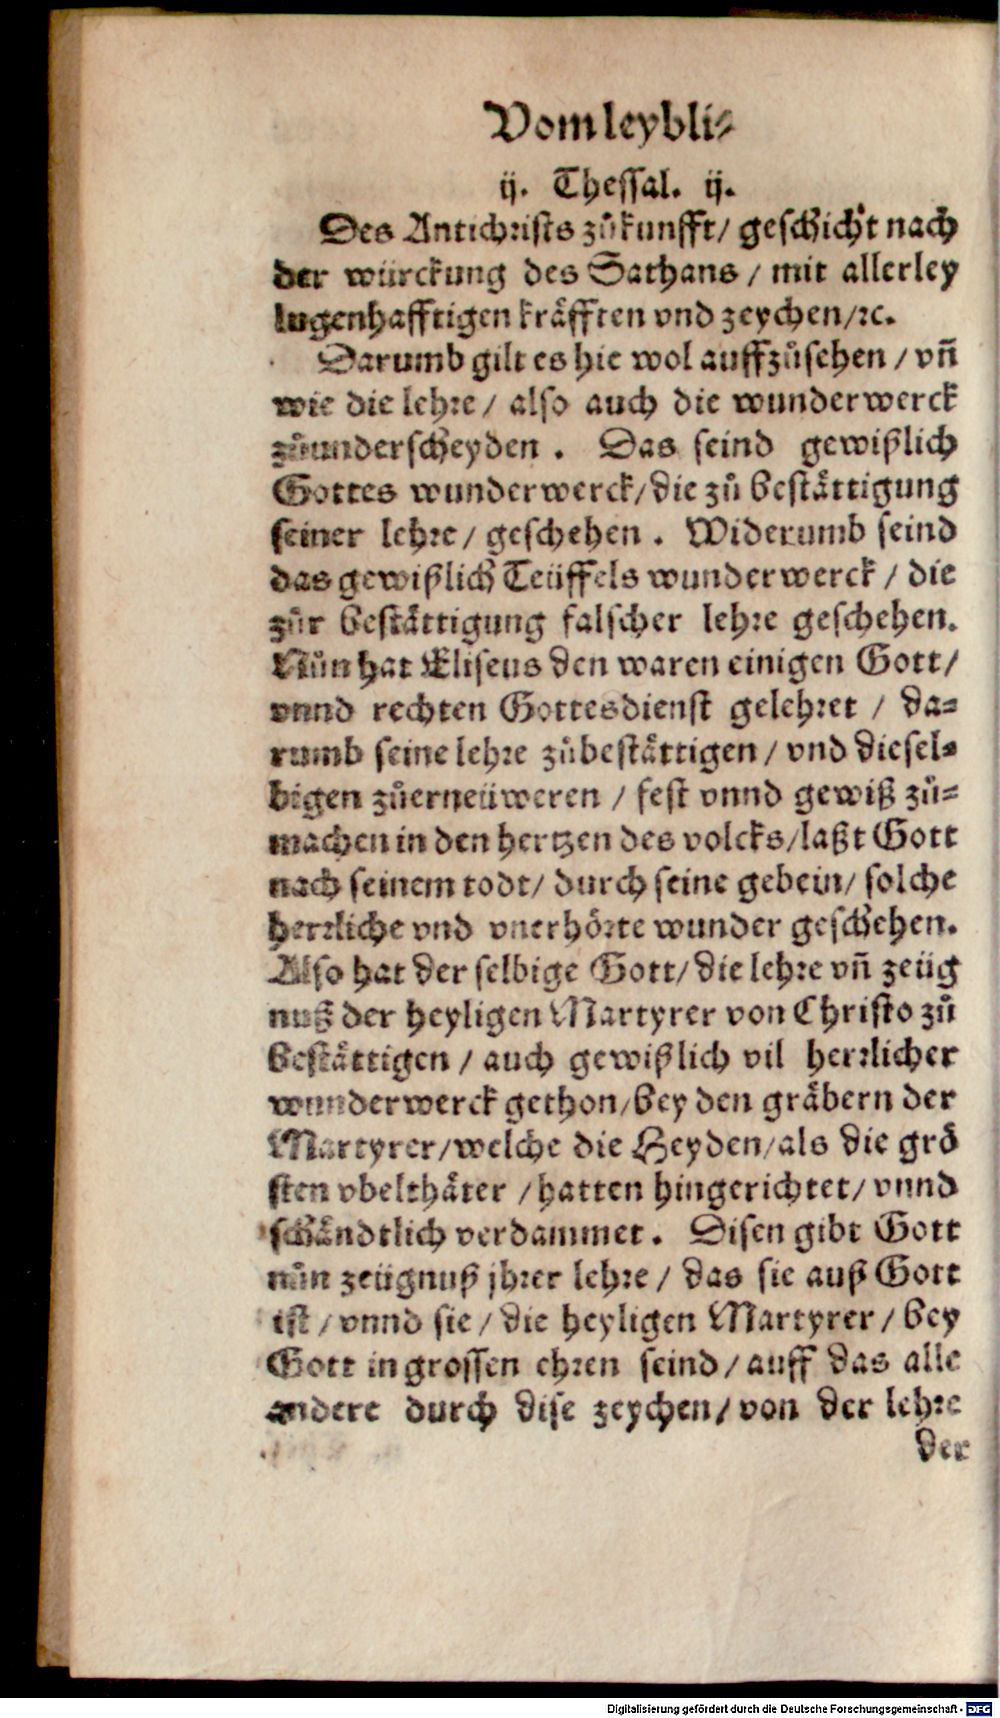 Vom leybli⸗
ij. Thessal. ij.
Des Antichrists zůkunfft/ geschicht nach
der würckung des Sathans / mit allerley
lugenhafftigen kräfften vnd zeychen/ꝛc.
Darumb gilt es hie wol auffzůsehen / vñ
wie die lehre / also auch die wunderwerck
zůunderscheyden . Das seind gewißlich
Gottes wunderwerck/die zů bestättigung
seiner lehre / geschehen . Widerumb seind
das gewißlich Teüffels wunderwerck / die
zůr bestättigung falscher lehre geschehen.
Nůn hat Eliseus den waren einigen Gott/
vnnd rechten Gottesdienst gelehret / da⸗
rumb seine lehre zůbestättigen / vnd diesel⸗
bigen zůerneüweren / fest vnnd gewiß zů⸗
machen in den hertzen des volcks/laßt Gott
nach seinem todt/ durch seine gebein/ solche
herrliche vnd vnerhörte wunder geschehen.
Also hat der selbige Gott/ die lehre vñ zeüg
nuß der heyligen Martyrer von Christo zů
bestättigen / auch gewißlich vil herrlicher
wunderwerck gethon/bey den gräbern der
Martyrer/welche die Heyden/als die grö
sten vbelthäter / hatten hingerichtet/ vnnd
schändtlich verdammet . Disen gibt Gott
nůn zeügnuß jhrer lehre / das sie auß Gott
ist / vnnd sie / die heyligen Martyrer / bey
Gott in grossen ehren seind / auff das alle
andere durch dise zeychen/ von der lehre
der
Digitalisierung gefördert durch die Deutsche Forschungsgemeinschaft - DFG